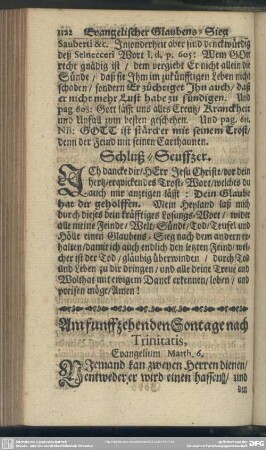 1122 Evangelischer Glaubens-Sieg
Sauberti &c. Insonderheit aber sind denckwürdig
deß Selneceri Wort I. d. p. 605: Wem GOtt
recht gnädig ist / dem vergiebt Er nicht allein die
Sünde / daß sie Ihm im zukünfftigen Leben nicht
schaden / sondern Er züchtiget Ihn auch / daß
er nicht mehr Lust habe zu sündigen. Und
pag 603: Gott lässt uns alles Creutz / Kranckheit
und Unfall zum besten geschehen. Und pag.
Nill: GOTT ist stärcker mit seinem Trost /
denn der Feind mit seinen Carthaunen.
Schluß-Seuffzer.
ICh dancke dir / HErr Jesu Christe / vor dein
hertz-erquickendes Trost-Wort / welches du
auch mir anzeigen lässt: Dein Glaube
hat dir geholffen. Mein Heyland laß mich
durch dieses dein kräfftiges Losungs-Wort / wider
alle meine Feinde / Welt / Sünde / Tod / Teufel und
Hölle einen Glaubens-Sieg nach dem andern er-
halten / damit ich auch endlich den letzten Feind / wel-
cher ist der Tod / gläubig überwinden / durch Tod
und Leben zu dir dringen / und alle deine Treue und
Wolthat mit ewigem Danck erkennen / loben / und
preisen möge / Amen!
Am funffzehenden Sontage nach
Trinitatis,
Evangelium Matth. 6.
Niemand kan zweyen Herren dienen /
entweder er wird einen hassen / und
den